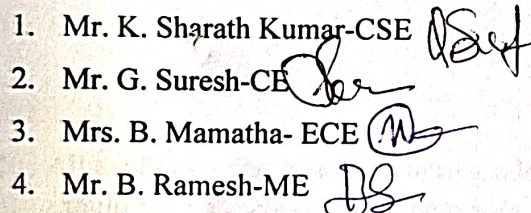 1. Mr. K. Sharath Kumar-CSE
2. Mr. G. Suresh-CE
3. Mrs. B. Mamatha- ECE
4. Mr. B. Ramesh-ME